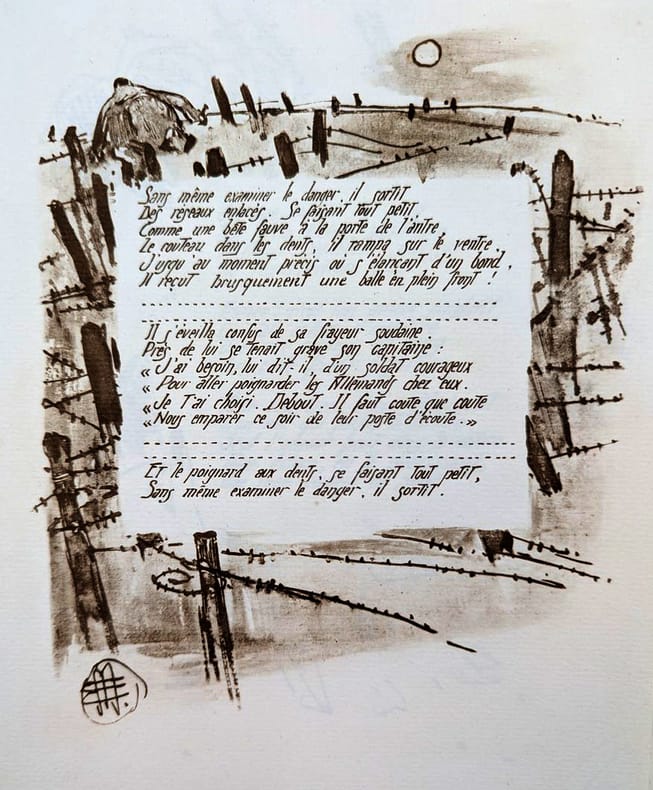 Sans même examiner le danger, il sortit
Des réseaux enlacés. Se faisant tout petit,
Comme une bête fauve à la porte de l'antre,
Le couteau dans les dents, il rampa sur le ventre,
Jusqu'au moment précis où s'élançant d'un bond,
Il reçut brusquement une balle en plein front !
Il s'éveilla confus de sa frayeur soudaine.
Près de lui se tenait grave son capitaine :
« J'ai besoin, lui dit-il d'un soldat courageux
« Pour aller poignarder les Allemands chez eux.
« Je t'ai choisi. Debout. Il faut coûte que coûte
« Nous emparer ce soir de leur poste d'écoute. »
Et le poignard aux dents, se faisant tout petit,
Sans même examiner le danger, il sortit.